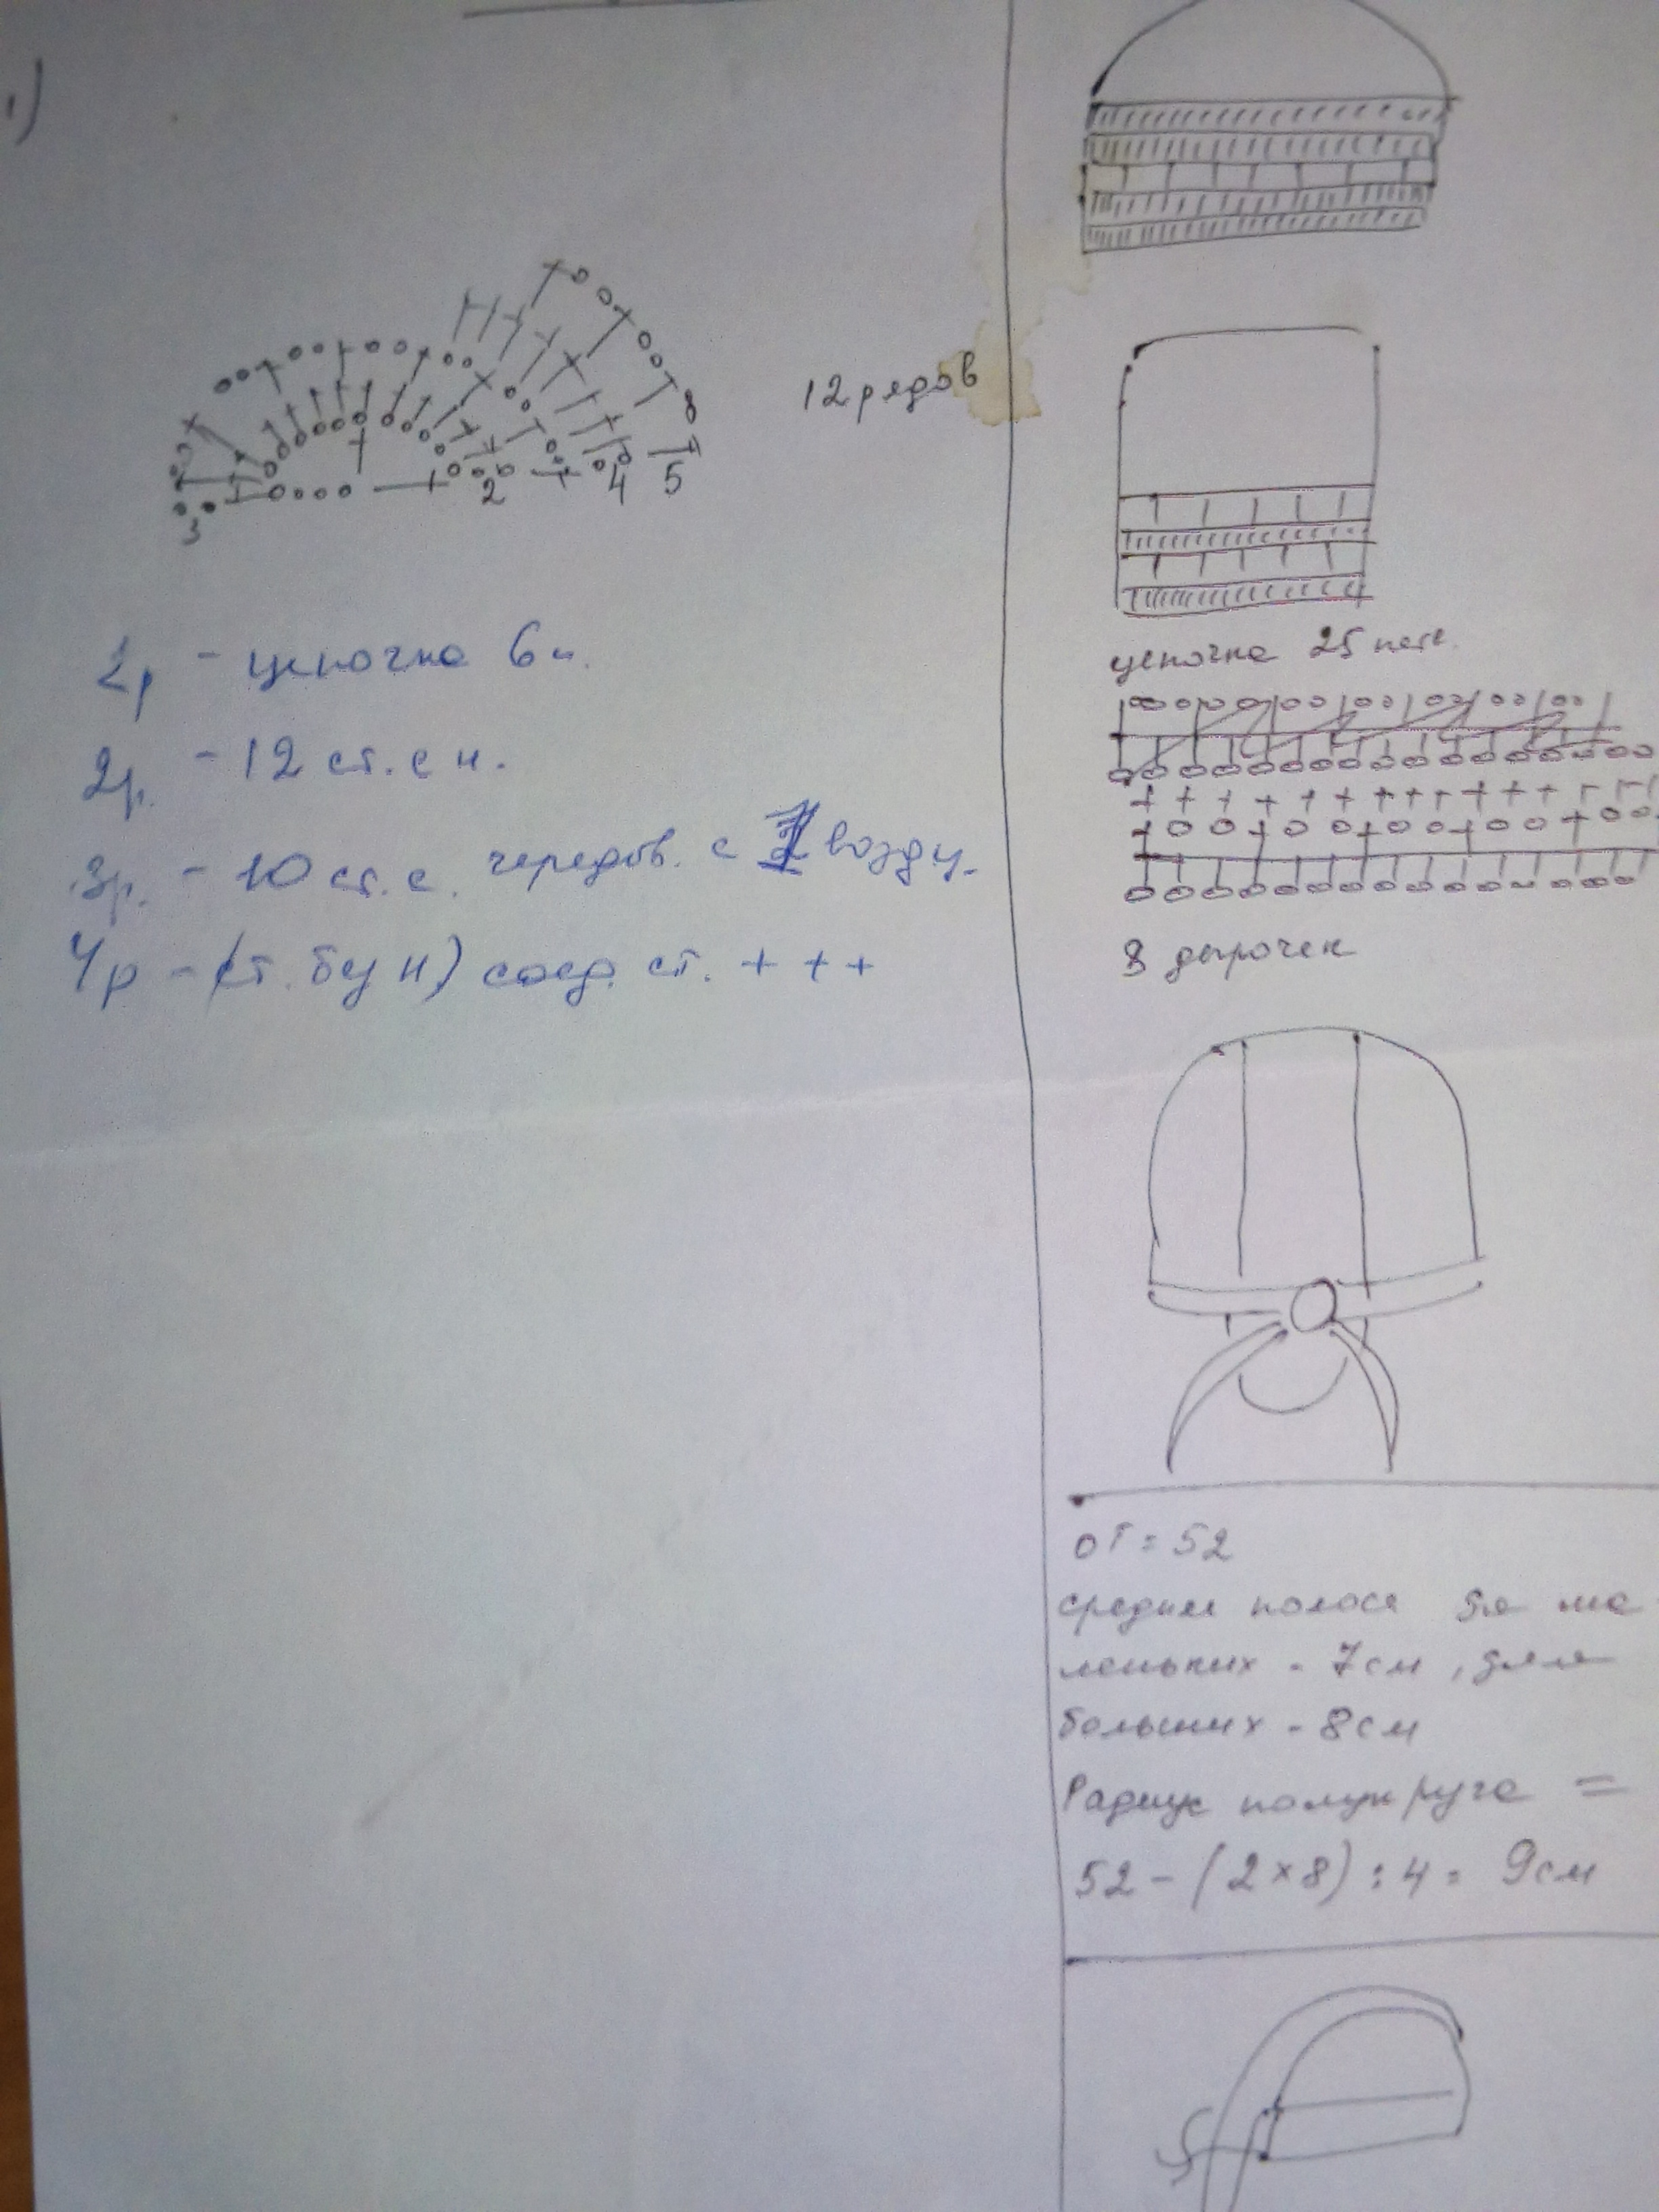 1)
12 рядов
3
2
4
5
1р - цепочка 6 п.
2р. - 12 ст. с н.
3р. - 10 ст. с. чередов. с возду.
4р - (ст. без н) соед. ст. + + +
цепочка 25 пет.
8 дырочек
ОГ = 52
средняя полоса для ма
леньких - 7 см, для
больших - 8 см
Радиус полукруга =
52 - (2 x 8) : 4 = 9 см